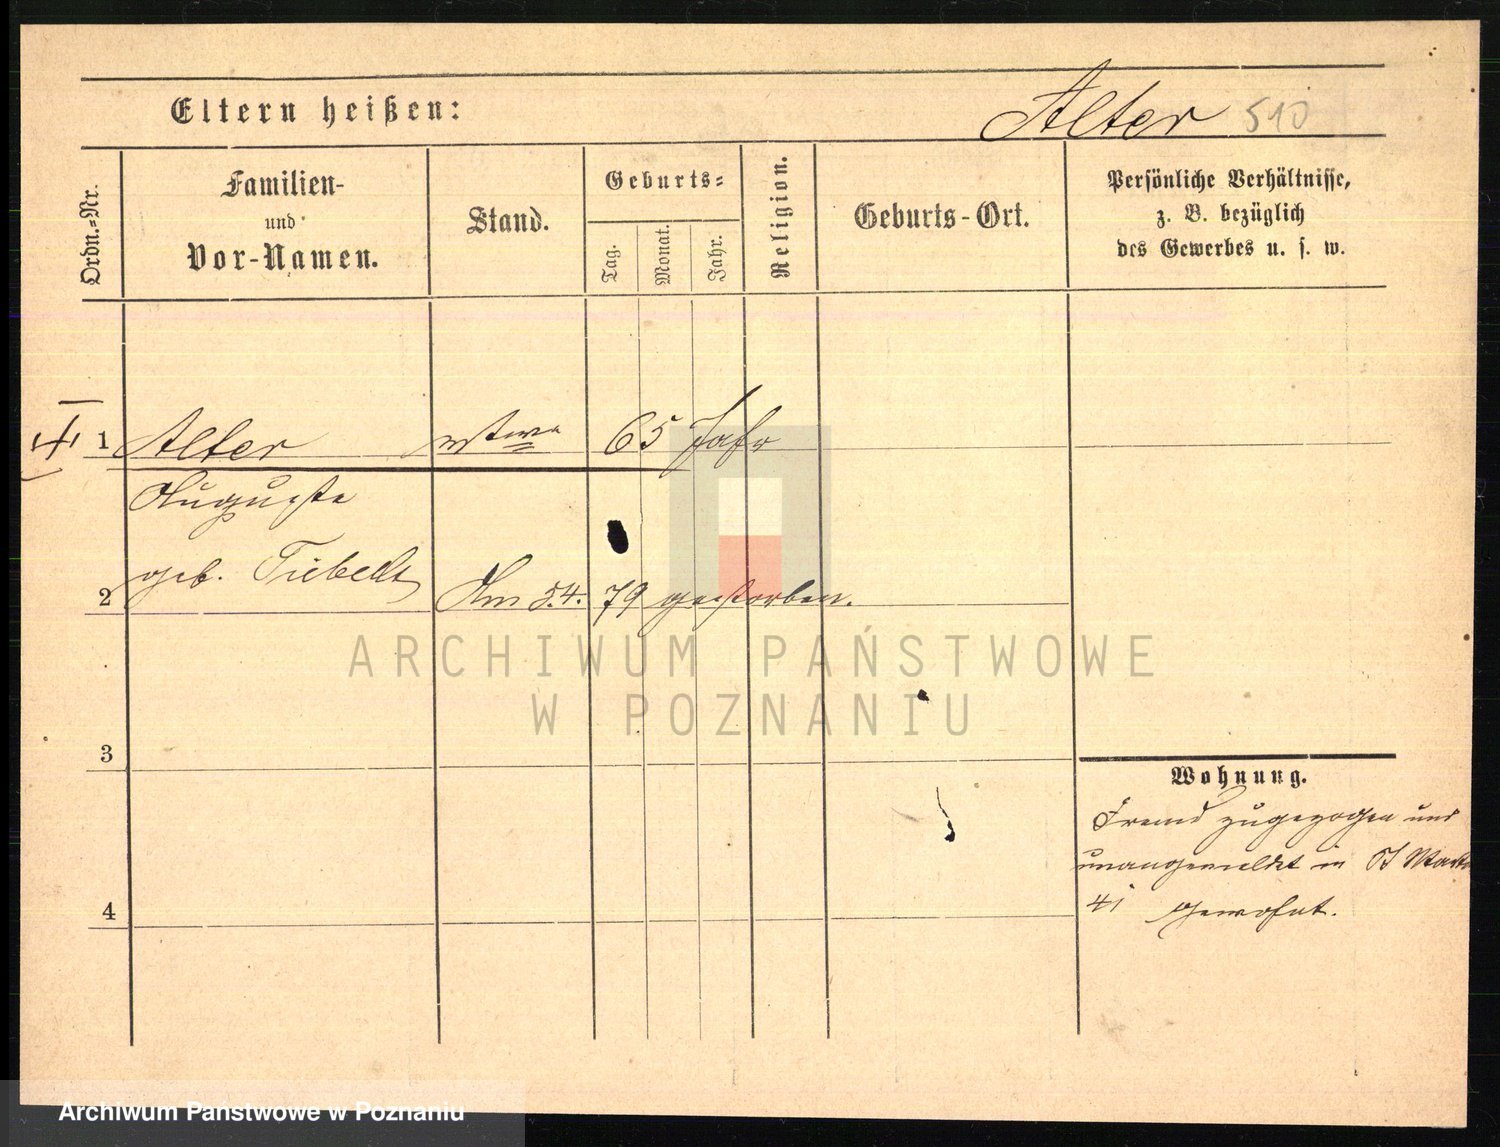 Eltern heißen: Alter 510
Ordn.=Nr.
Familien-
und
Vor-Namen.
Stand.
Geburts=
Tag.
Monat.
Jahr.
Religion.
Geburts-Ort.
Persönliche Verhältnisse,
z. B. bezüglich
des Gewerbes u. s. w.
1 Alter etwa 65 Jahr
Auguste
2 geb. Am 5.4. 79 gestorben.
3
4
Wohnung.
Fremd zugezogen und
unangemeldet in St Martin
41 gewohnt.
ARCHIWUM PAŃSTWOWE
W POZNANIU
Archiwum Państwowe w Poznaniu